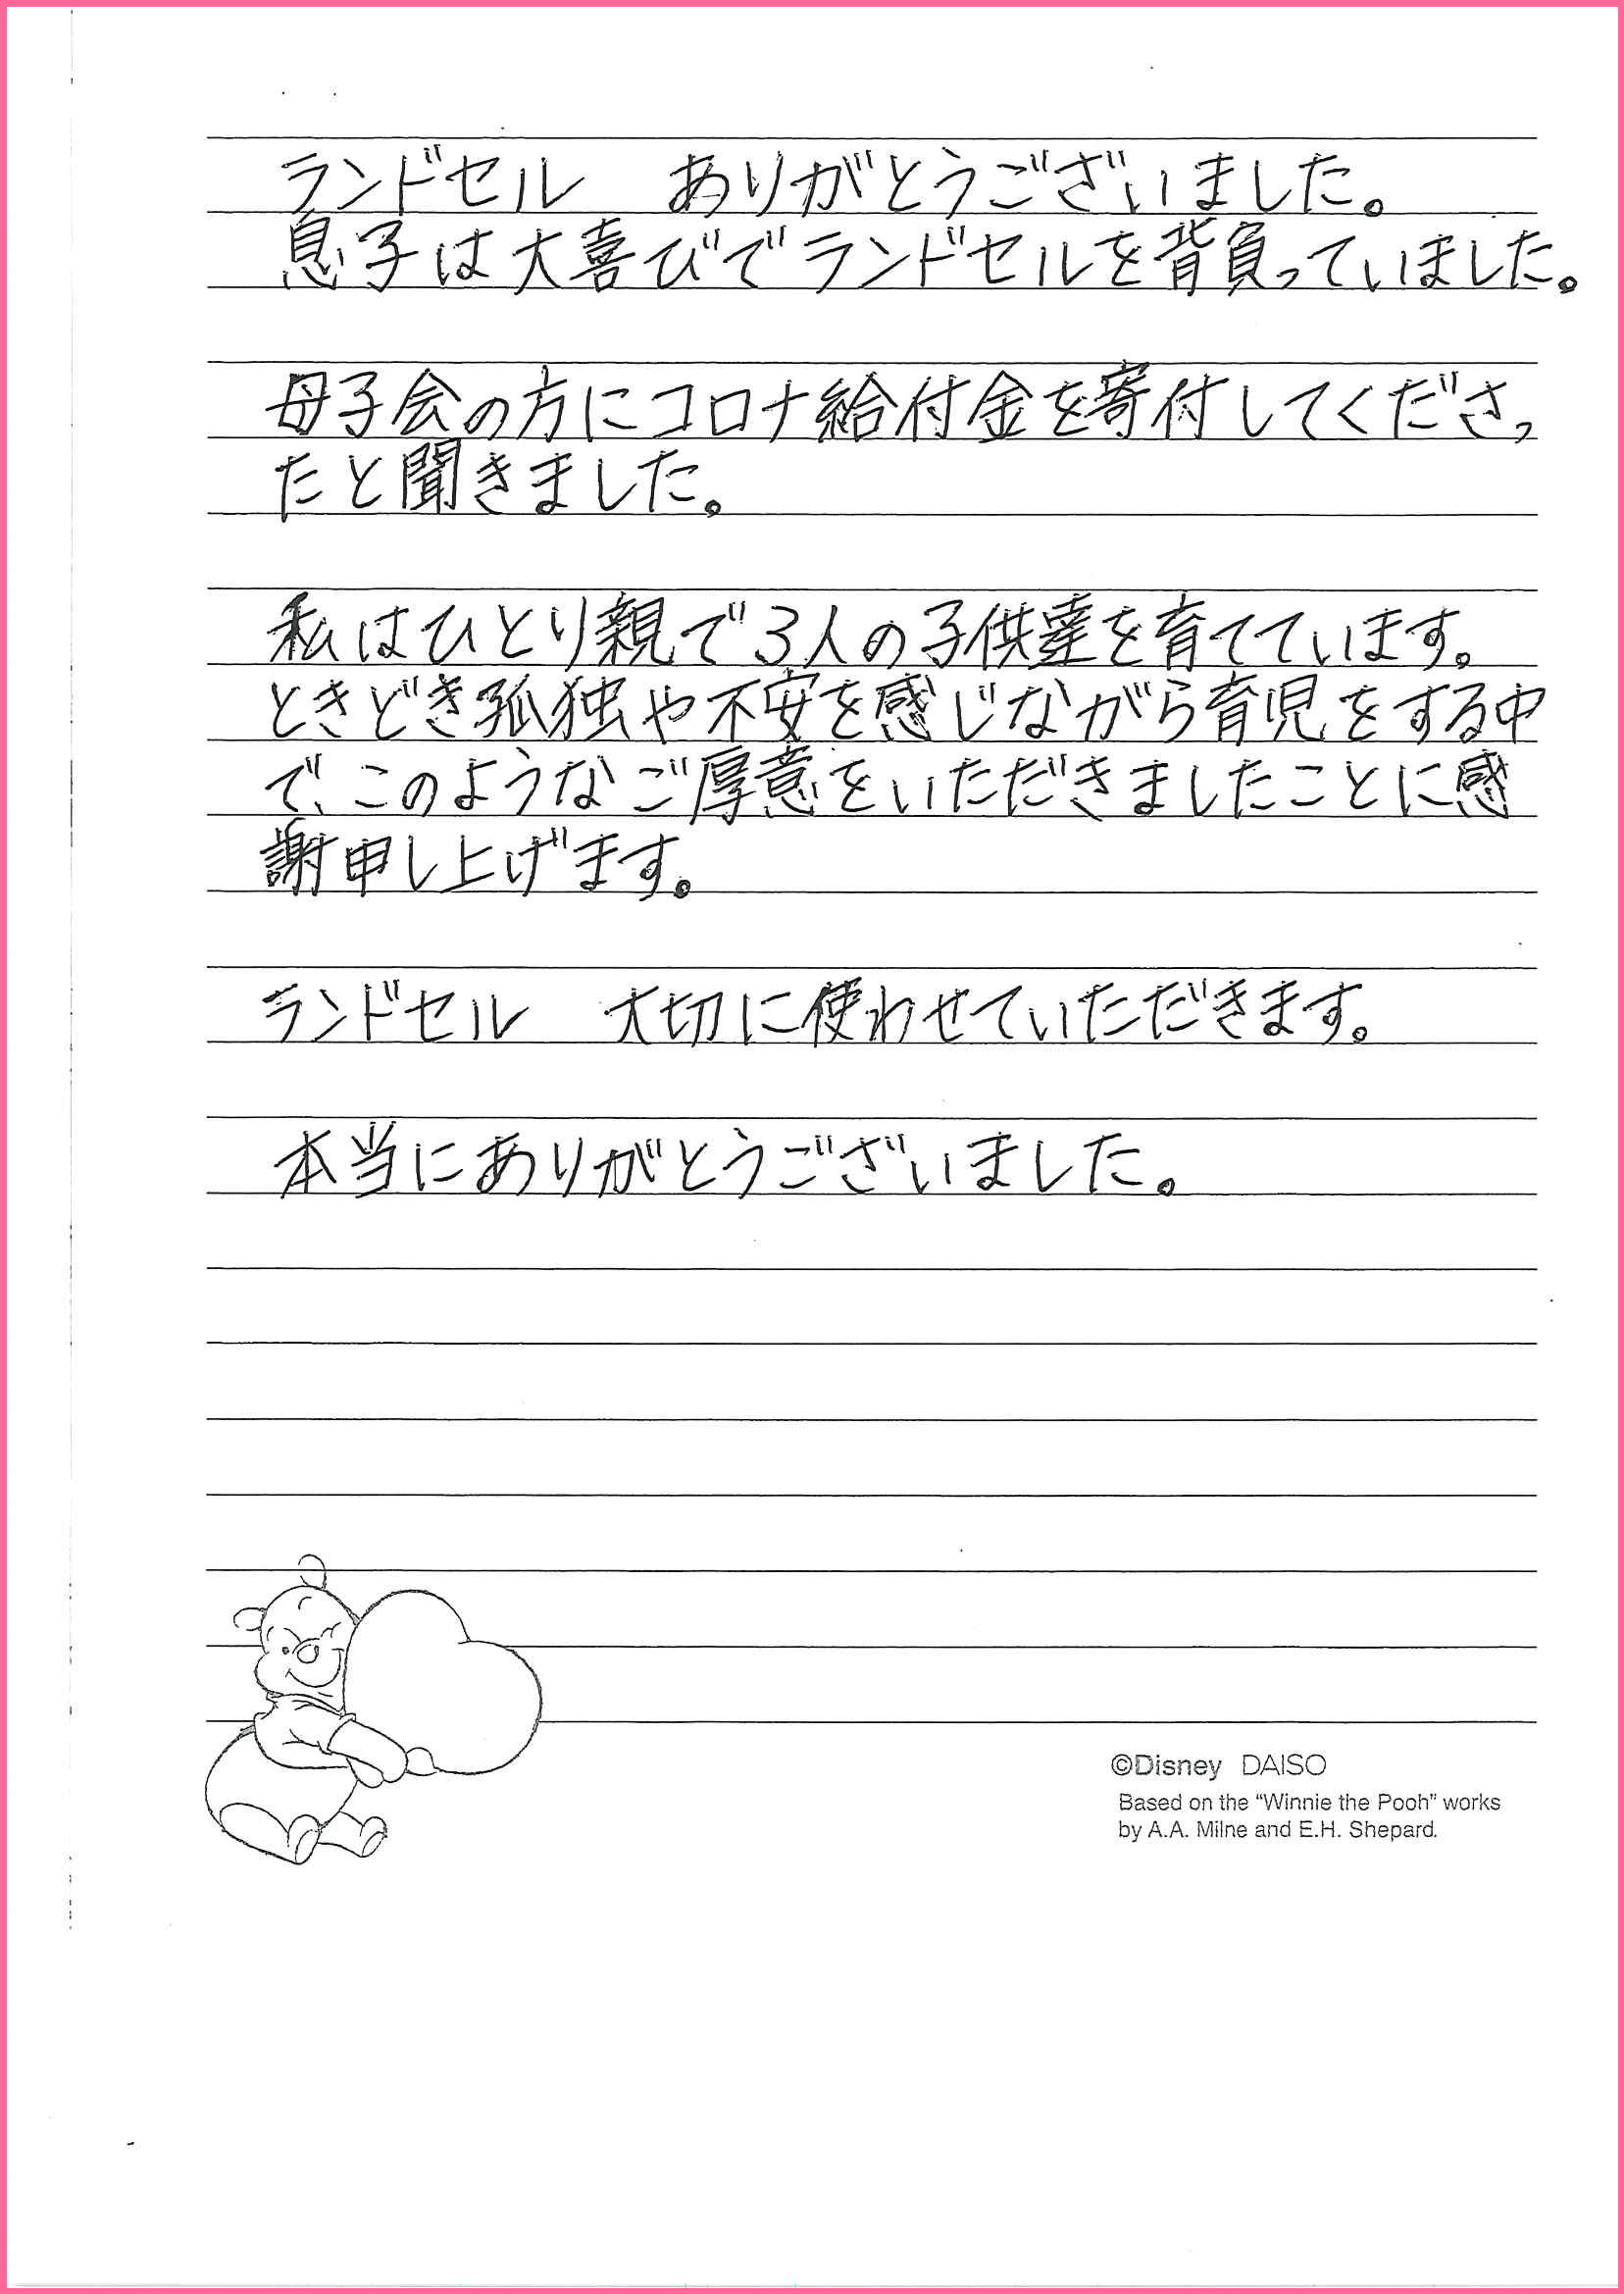 ランドセル　ありがとうございました。
息子は大喜びでランドセルを背負っていました。
母子会の方にコロナ給付金を寄付してくださっ
たと聞きました。
私はひとり親で3人の子供達を育てています。
ときどき孤独や不安を感じながら育児をする中
で、このようなご厚意をいただきましたことに感
謝申し上げます。
ランドセル　大切に使わせていただきます。
本当にありがとうございました。
©Disney DAISO
Based on the “Winnie the Pooh” works
by A.A. Milne and E.H. Shepard.